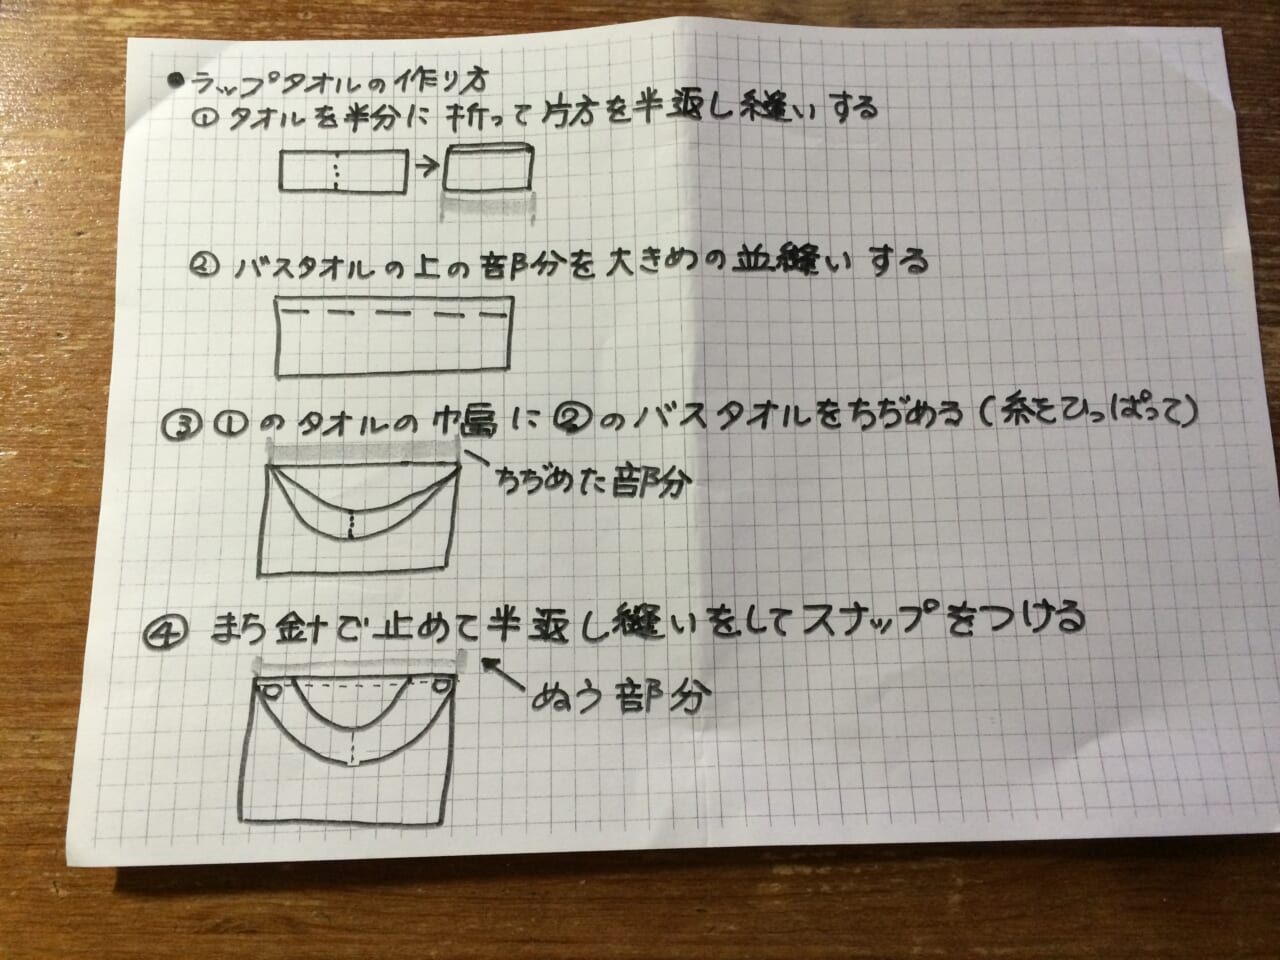 ●ラップタオルの作り方
①タオルを半分に折って片方を半返し縫いする
②バスタオルの上の部分を大きめの並縫いする
③①のタオルの幅に②のバスタオルをちぢめる(糸をひっぱって)
ちぢめた部分
④まち針で止めて半返し縫いをしてスナップをつける
ぬう部分